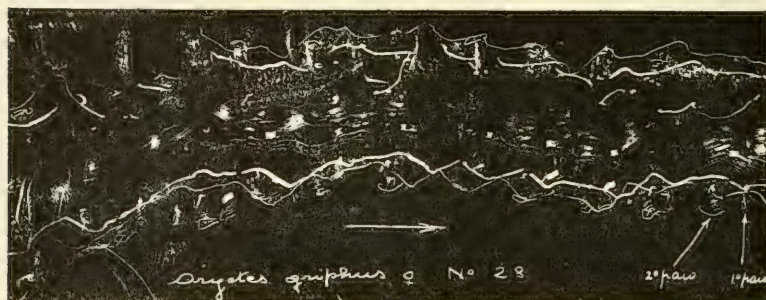 Oryctes griphus ♀ Nº 28
2º paio 1º paio